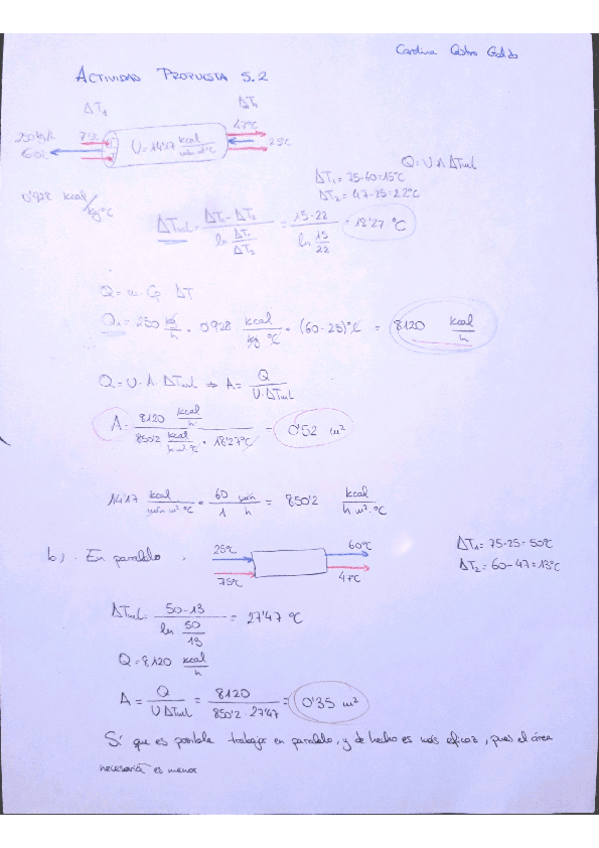 Carolina Castro
ACTIVIDAD PROPUESTA 5.2
ΔT₂ ΔT₁
250 kg/h 75ºC 47ºC
60ºC U=14'17 kcal/min m² ºC 25ºC
Q=U·A·ΔTml
ΔT₁ = 75-60=15ºC
ΔT₂ = 47-25=22ºC
0'928 kcal/kgºC
ΔTml = (ΔT₁-ΔT₂)/(ln ΔT₁/ΔT₂) = (15-22)/(ln 15/22) = 18'27 ºC
Q = m·Cp ΔT
Q₁ = 250 kg/h · 0928 kcal/kg ºC · (60-25)ºC = 8120 kcal/h
Q = U·A·ΔTml ⇒ A = Q/(U·ΔTml)
A = (8120 kcal/h)/(850'2 kcal/h m² ºC · 18'27ºC) = 0'52 m²
14'17 kcal/min m² ºC · 60 min/1 h = 850'2 kcal/h m² ºC
b) . En paralelo . 25ºC 60ºC
75ºC 47ºC
ΔT₁ = 75-25=50ºC
ΔT₂ = 60-47=13ºC
ΔTml = (50-13)/(ln 50/13) = 27'47 ºC
Q = 8120 kcal/h
A = Q/(U ΔTml) = 8120/(850'2 · 27'47) = 0'35 m²
Sí que es posible trabajar en paralelo, y de hecho es más eficaz, pues el área
necesaria es menor